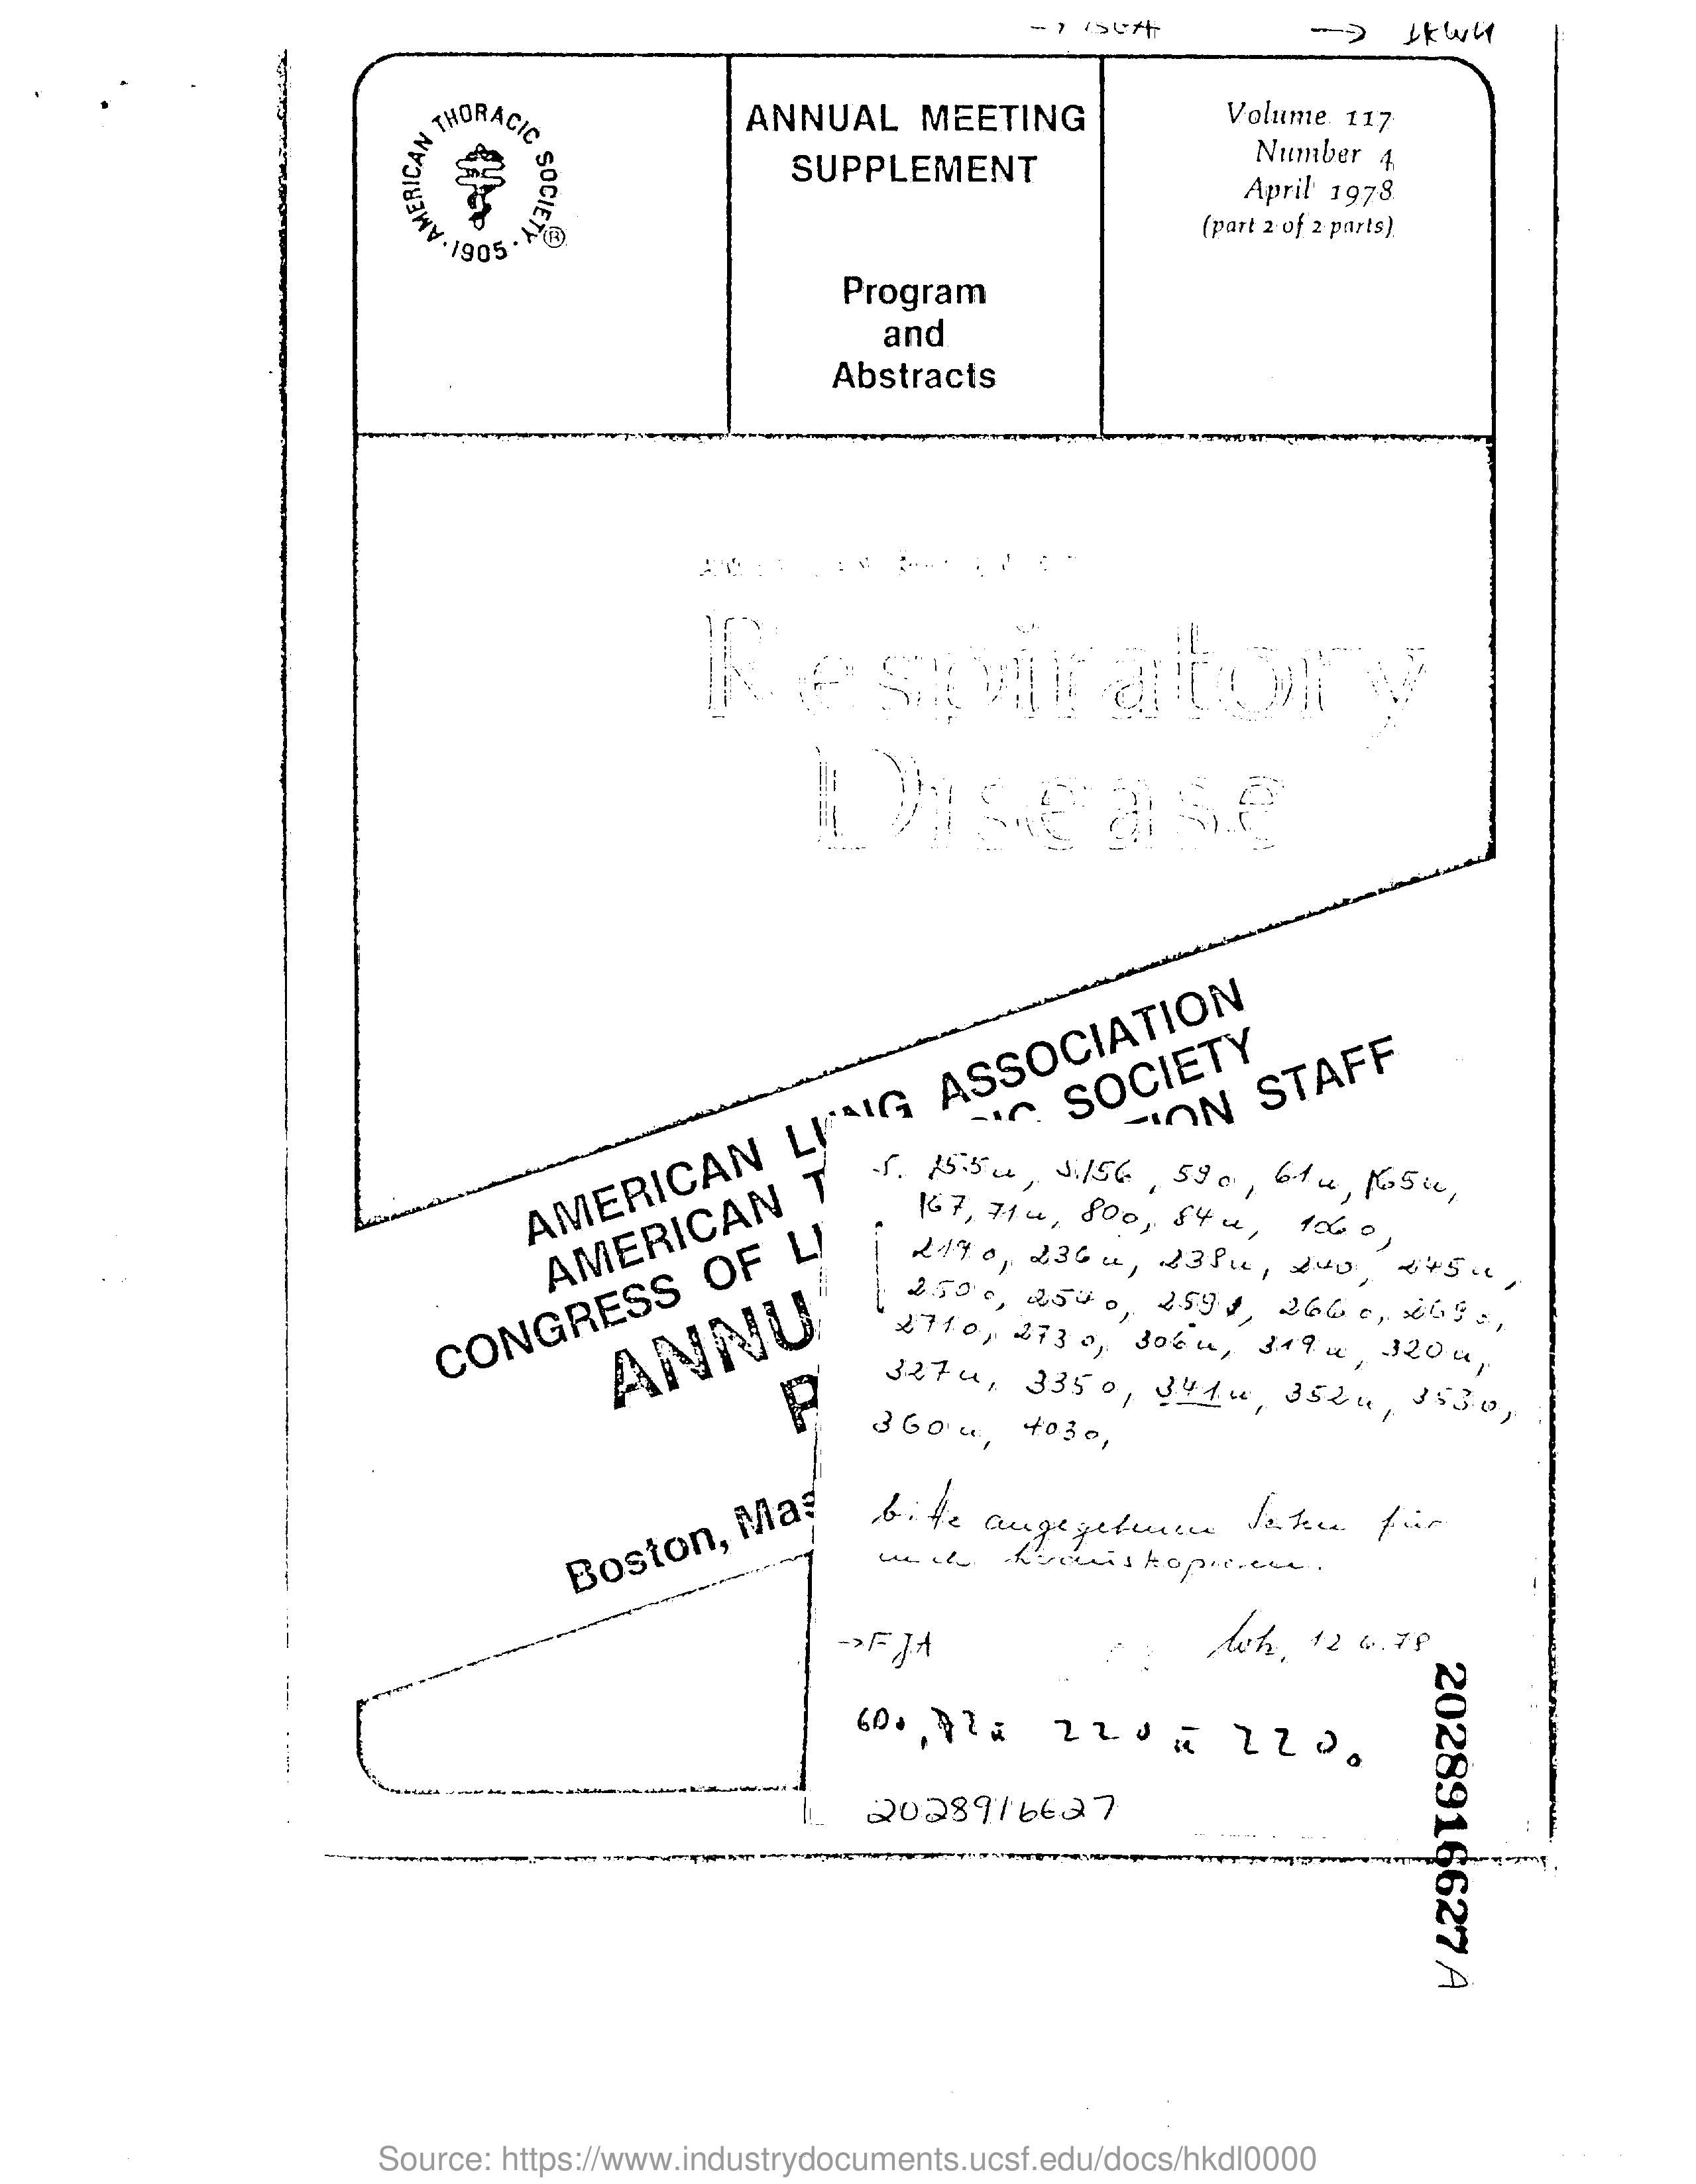 → IKWH
AMERICAN THORACIC SOCIETY ® · 1905 ·
ANNUAL MEETING
SUPPLEMENT
Program
and
Abstracts
Volume 117
Number 4
April 1978
(part 2 of 2 parts)
Respiratory
Disease
AMERICAN LUNG ASSOCIATION
AMERICAN T SOCIETY
CONGRESS OF L STAFF
ANNU
P
Boston, Mas
S. 155u, S.156, 59o, 61u, 165u,
167, 71u, 80o, 84u, 106o,
219o, 236u, 238u, 240, 245u,
250o, 254o, 259, 266o, 269o,
271o, 273o, 306u, 319u, 320u,
327u, 335o, 341u, 352u, 353o,
360u, 403o,
bitte angegebenen Seiten für
mich herauskopieren.
→ FJA
12.6.78
60o, 220 220o
2028916627
2028916627 A
Source: https://www.industrydocuments.ucsf.edu/docs/hkdl0000